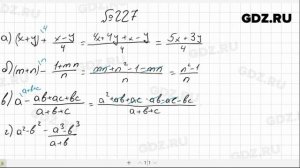 GDZ.RU
№227
а) (x+y) + x-y/4 = 4x+4y+x-y/4 = 5x+3y/4
б) (m+n) - 1+mn/n = mn+n²-1-mn/n = n²-1/n
в) a - ab+ac+bc/a+b+c = a²+ab+ac-ab-ac-bc/a+b+c
г) a²-b² - a³-b³/a+b
GDZ.RU